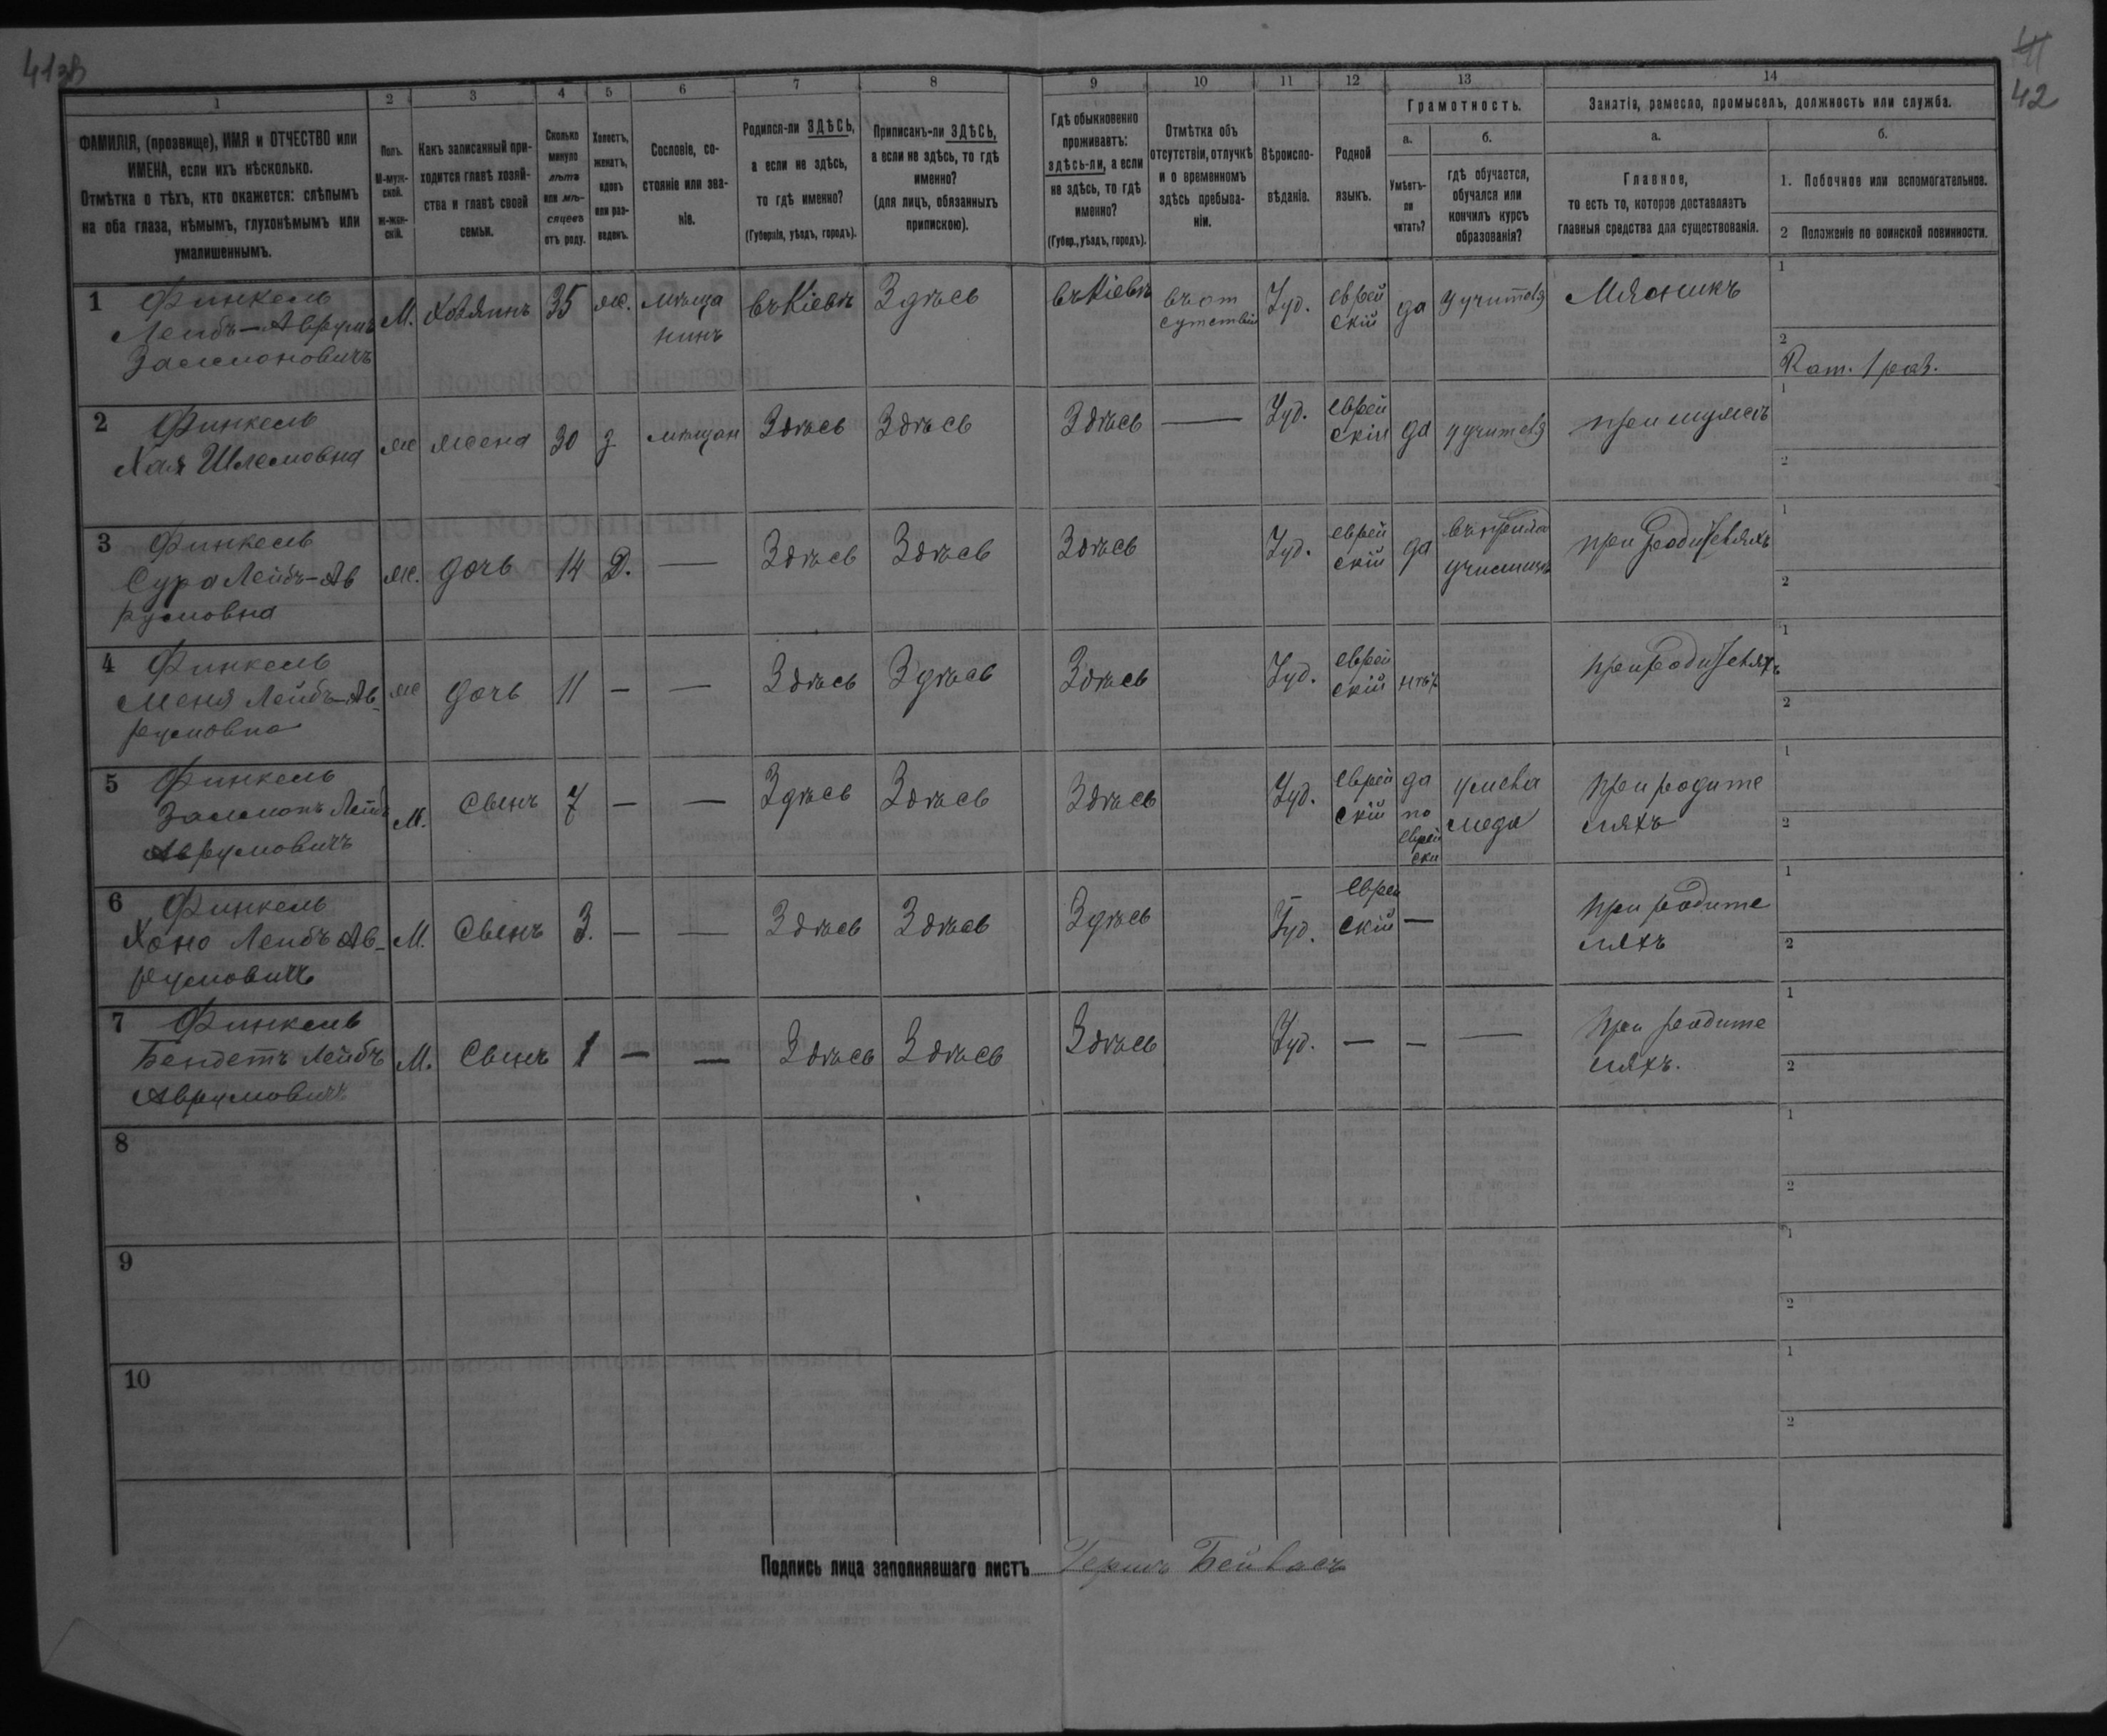 41зв
42
1
2
3
4
5
6
7
8
9
10
11
12
13
14
ФАМИЛІЯ, (прозвище), ИМЯ и ОТЧЕСТВО или
ИМЕНА, если ихъ нѣсколько.
Отмѣтка о тѣхъ, кто окажется: слѣпымъ
на оба глаза, нѣмымъ, глухонѣмымъ или
умалишеннымъ.
Полъ.
М-муж-
ской.
ж-жен-
скій.
Какъ записанный при-
ходится главѣ хозяй-
ства и главѣ своей
семьи.
Сколько
минуло
лѣтъ
или мѣ-
сяцевъ
отъ роду.
Холостъ,
женатъ,
вдовъ
или раз-
веденъ.
Сословіе, со-
стояніе или зва-
ніе.
Родился-ли ЗДѢСЬ,
а если не здѣсь,
то гдѣ именно?
(Губернія, уѣздъ, городъ).
Приписанъ-ли ЗДѢСЬ,
а если не здѣсь, то гдѣ
именно?
(для лицъ, обязанныхъ
припискою).
Гдѣ обыкновенно
проживаетъ:
здѣсь-ли, а если
не здѣсь, то гдѣ
именно?
(Губер., уѣздъ, городъ).
Отмѣтка объ
отсутствіи, отлучкѣ
и о временномъ
здѣсь пребыва-
ніи.
Вѣроиспо-
вѣданіе.
Родной
языкъ.
Грамотность.
а.
Умѣетъ-
ли
читать?
б.
гдѣ обучается,
обучался или
кончилъ курсъ
образованія?
Занятія, ремесло, промыселъ, должность или служба.
а.
Главное,
то есть то, которое доставляетъ
главныя средства для существованія.
б.
1. Побочное или вспомогательное.
2 Положеніе по воинской повинности.
1 Финкель
Лейбъ-Аврумъ
Залмоновичъ
М. Хозяинъ 35 ж. мѣща
нинъ
въ Кіевѣ Здѣсь въ Кіевѣ въ от
сутствіи
Іуд. еврей
скій
да у учителя Мясникъ
1
2
Рат. 1 раз.
2 Финкель
Хая Шлемовна
ж жена 30 з мѣщан Здѣсь Здѣсь Здѣсь — Іуд. еврей
скій
да у учителя при мужѣ
1
2
3 Финкель
Сура Лейбъ-Ав
румовна
ж. дочь 14 Д. — Здѣсь Здѣсь Здѣсь Іуд. еврей
скій
да
училищѣ
при родителяхъ
1
2
4 Финкель
Меня Лейбъ-Ав-
румовна
ж дочь 11 — — Здѣсь Здѣсь Здѣсь Іуд. еврей
скій
нѣтъ при родителяхъ
1
2
5 Финкель
Залмонъ Лейбъ
Аврумовичъ
М. Сынъ 7 — — Здѣсь Здѣсь Здѣсь Іуд. еврей
скій
да
по
еврей
ски
у мела
меда
при родите
ляхъ
1
2
6 Финкель
Хоно Лейбъ Ав-
румовичъ
М. Сынъ 3. — — Здѣсь Здѣсь Здѣсь Іуд. еврей
скій —
при родите
ляхъ
1
2
7 Финкель
Бендетъ Лейбъ
Аврумовичъ
М. Сынъ 1 — — Здѣсь Здѣсь Здѣсь Іуд. — — — при родите
ляхъ.
1
2
8
1
2
9
1
2
10
1
2
Подпись лица заполнявшаго листъ Гершъ